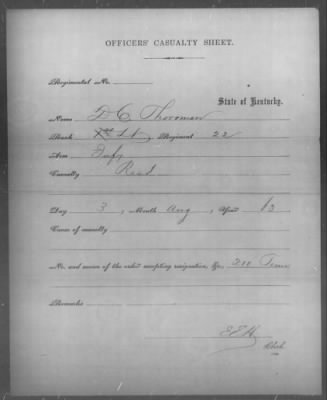 OFFICERS' CASUALTY SHEET.
Regimental No.
State of Kentucky.
Name D C Thoroman
Rank 2nd Lt, Regiment 22
Arm Infy
Casualty Resd
Day 3, Month Aug, Year 63
Cause of casualty
No. and source of the order accepting resignation, &c., 210 Tenn
Remarks
E E H
Clerk.